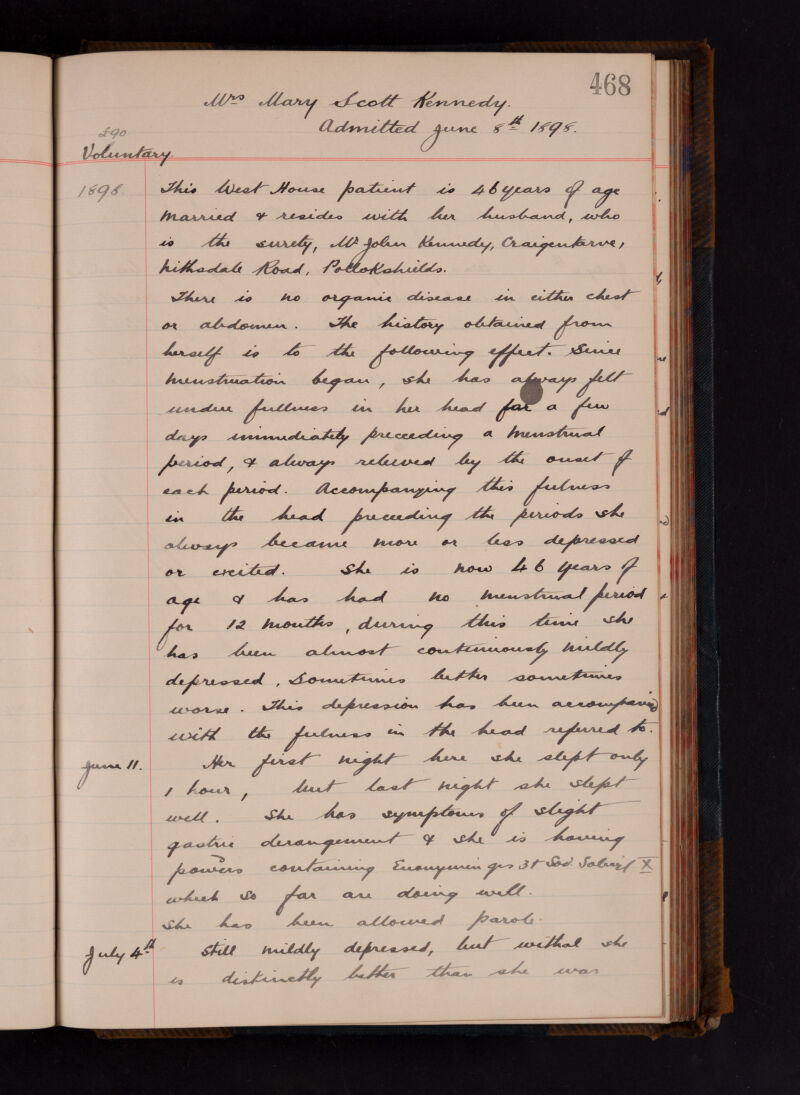 468
Mrs Mary Scott Kennedy.
Admitted June 8th 1898.
290
Voluntary.
1898. This West House patient is 46 years of age
married & resides with her husband, who
is the surety, Mr John Kennedy,
Nithsdale Road, Pollokshields.
There is no organic disease in either chest
or abdomen. The history obtained from
herself is to the following effect. Since
menstruation began, she has always felt
undue fullness in her head for a few
days immediately preceeding a menstrual
period, & always relieved by the onset of
each period. Accompanying this fulness
in the head preceeding the periods she
always became more or less depressed
or excited. She is now 46 years of
age & has had no menstrual period
for 12 months, during this time she
has been almost continuously mildly
depressed, sometimes better sometimes
worse. This depression has been accompanied
with the fulness in the head referred to.
June 11. Her first night here she slept only
1 hour, but last night she slept
well. She has symptoms of slight
gastric derangement & she is having
powders containing Euonymin grs 3 & Sod. X
which so far are doing well.
She has been allowed parole.
July 4th Still mildly depressed, but withal she
is distinctly better than she was